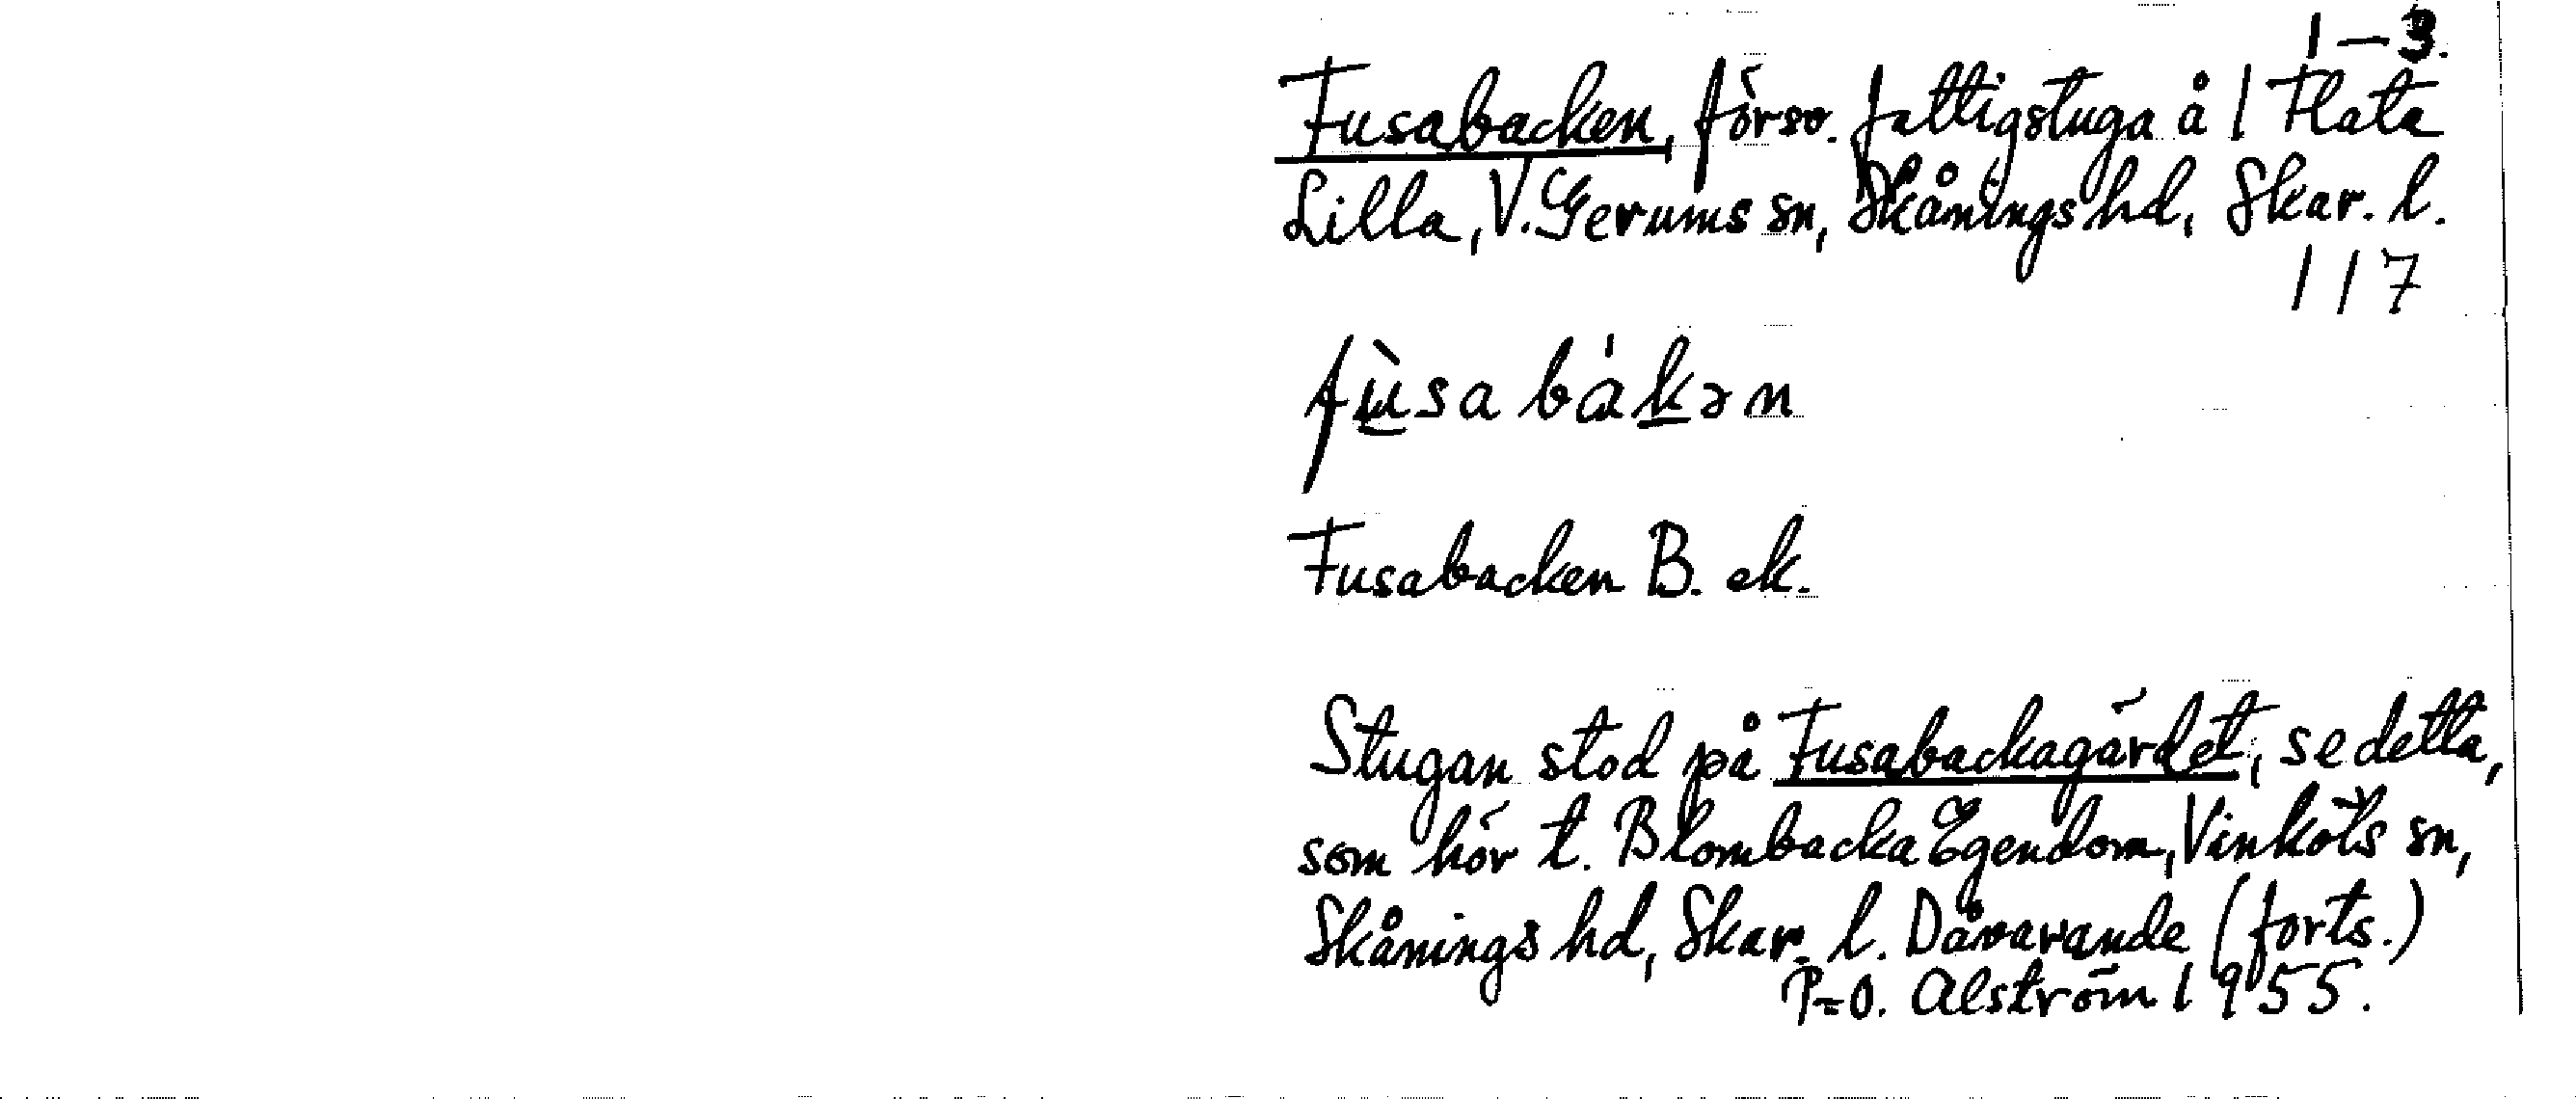 1–3.
Fusabacken, försv. fattigstuga å 1 Flata
Lilla, V. Gerums sn, Skånings hd, Skar. l.
117
fùsabákən
Fusabacken B. ek.
Stugan stod på Fusabackagärdet, se detta,
som hör t. Blombacka Egendom, Vinköls sn,
Skånings hd, Skar. l. Dåvarande (forts.)
P-O. Alström 1955.